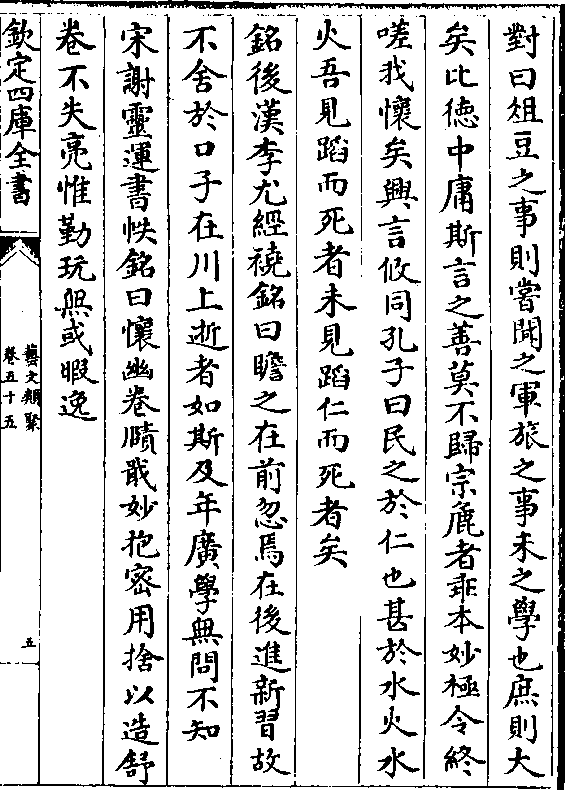 對曰俎豆之事則嘗聞之軍旅之事未之學也庶則大
矣比德中庸斯言之善莫不歸宗麄者乖本妙極令終
嗟我懷矣興言攸同孔子曰民之於仁也甚於水火水
火吾見蹈而死者未見蹈仁而死者矣
銘後漢李尤經橈銘曰瞻之在前忽焉在後進新習故
不舍於口子在川上逝者如斯及年廣學無問不知
宋謝靈運書帙銘曰懷幽卷賾戢妙抱密用捨以造舒
卷不失亮惟勤玩無或暇逸
欽定四庫全書
藝文類聚
卷五十五
五